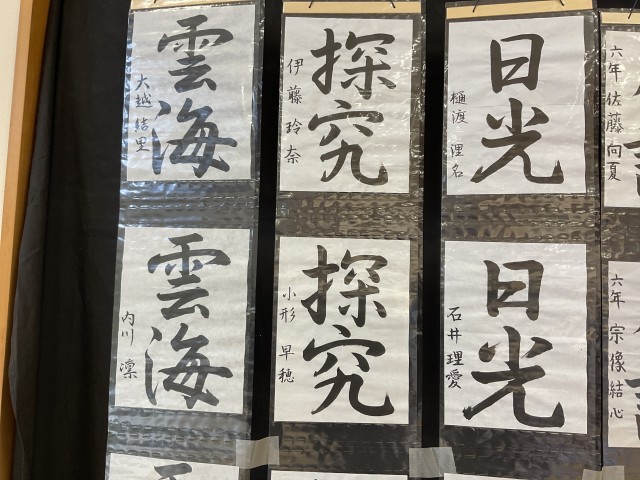 六年 佐藤向夏
日光
樋渡 理名
探究
伊藤 玲奈
雲海
大越 結里
六年 宗像結心
日光
石井 理愛
探究
小形 早穂
雲海
内川 凛